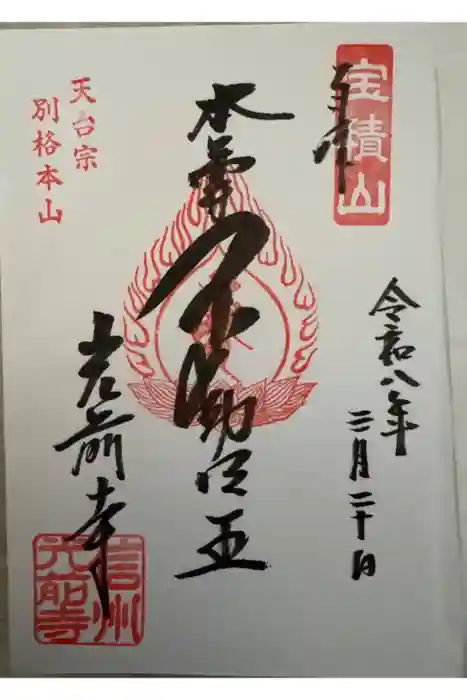 奉拝
宝積山
令和八年
三月二十日
本尊
不動明王
天台宗
別格本山
光前寺
信州
光前寺